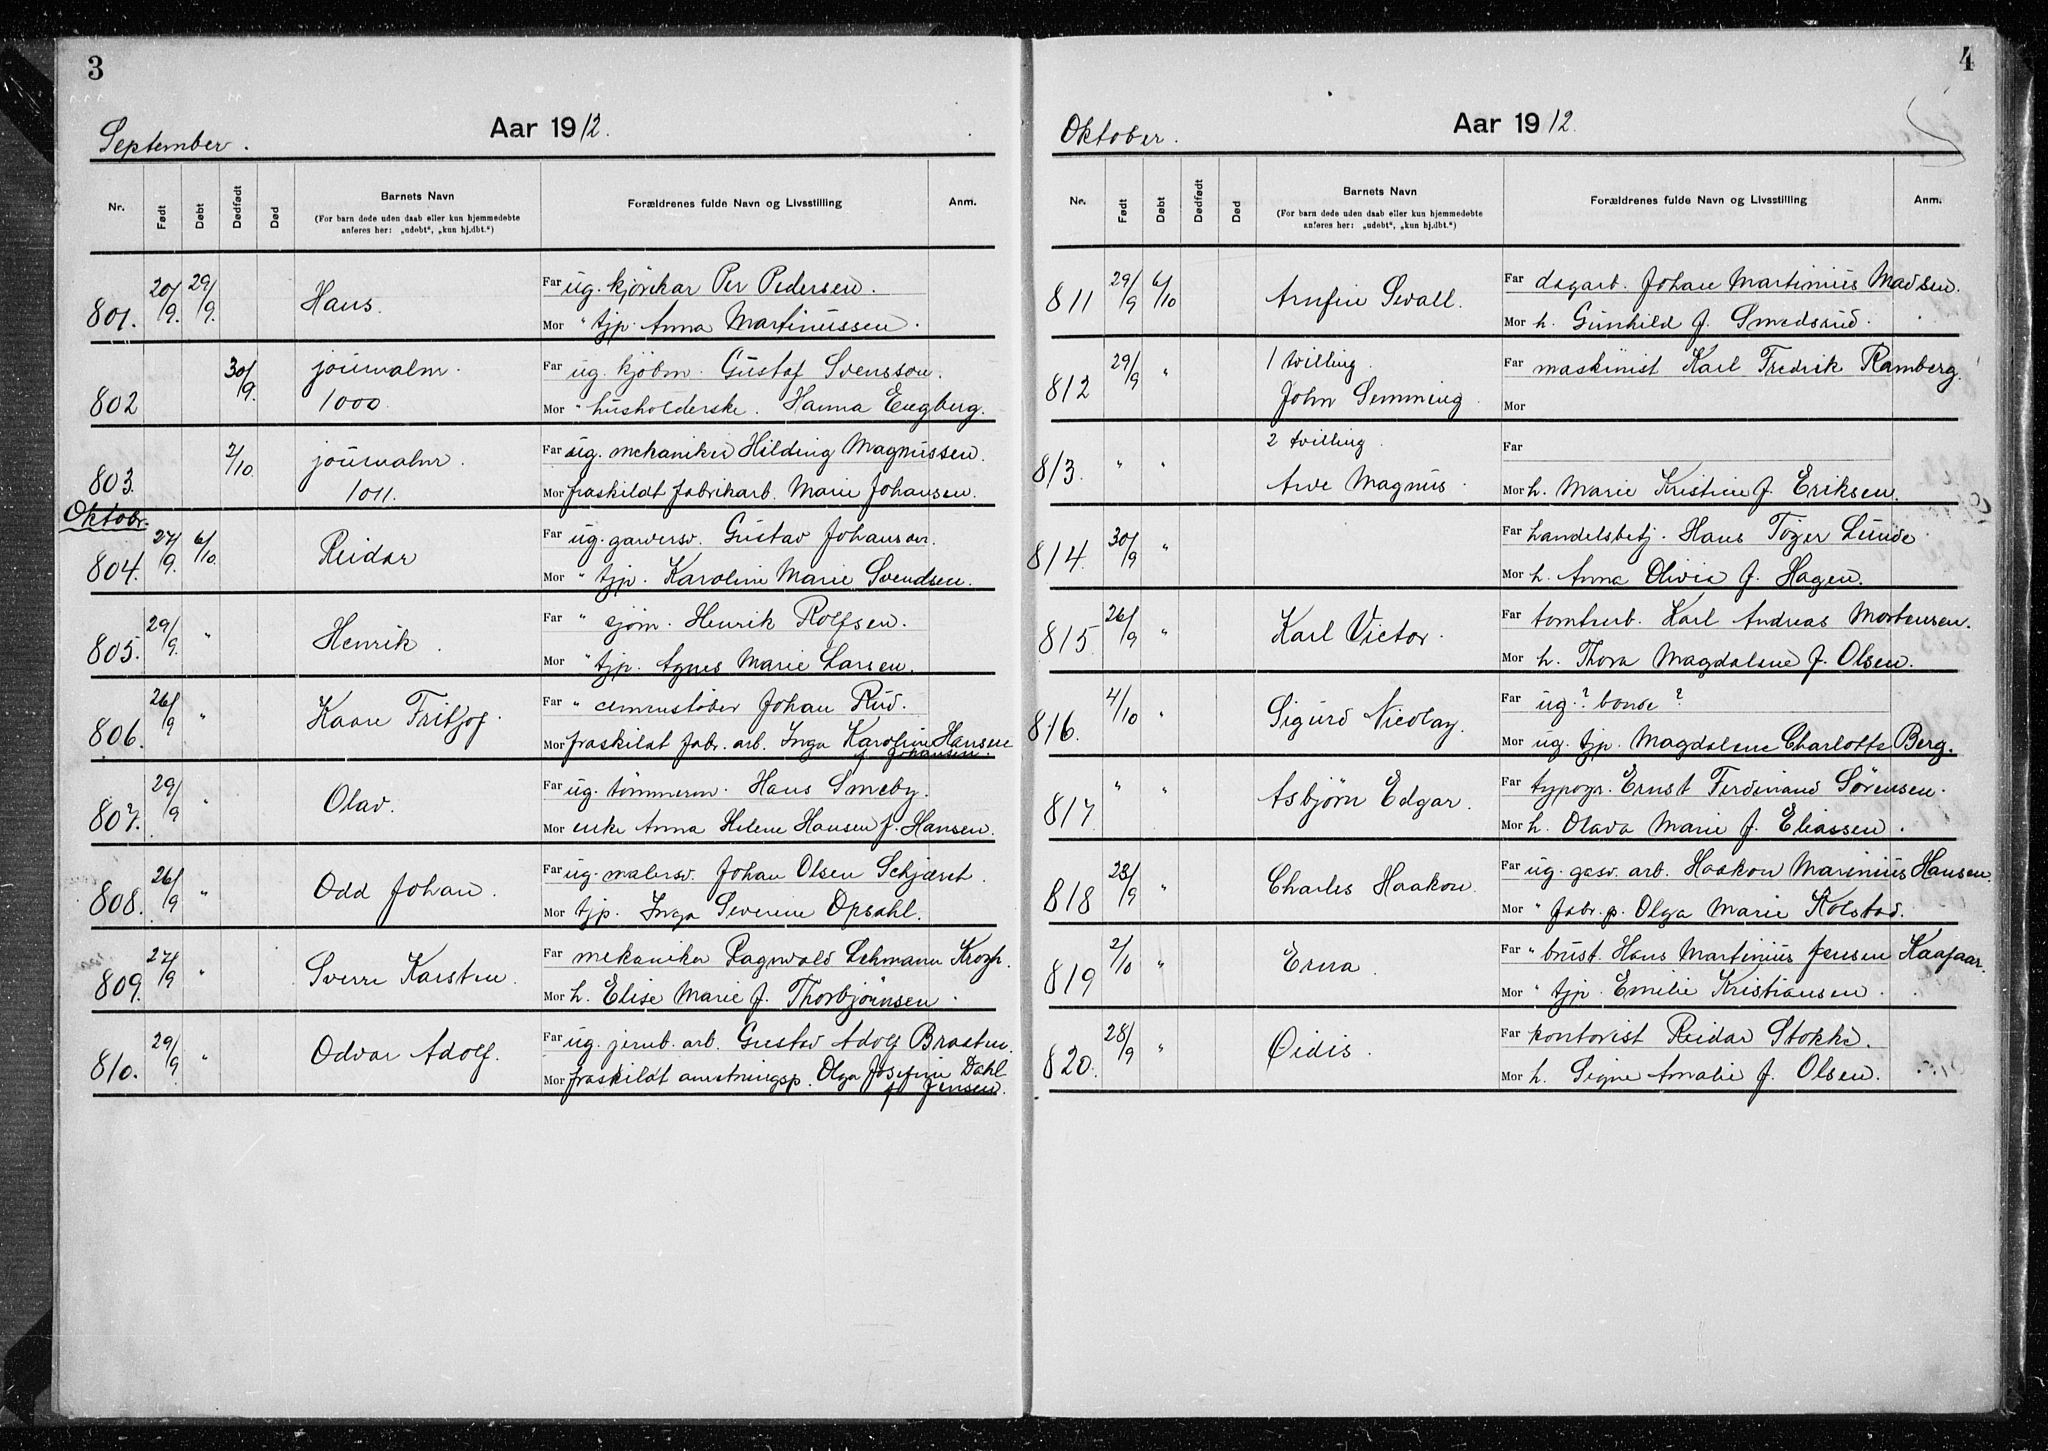 3
September.
Aar 1912.
Nr. Født Døbt Dødfødt Død Barnets Navn Forældrenes fulde Navn og Livsstilling Anm.
(For barn døde uden daab eller kun hjemmedøbte
anføres her: „udøbt“, „kun hj.dbt.“)
801. 20/9. 29/9. Hans. Far ug. kjørekar Per Pedersen.
Mor " tjp. Anna Martinussen.
802 30/9. journalnr. 1000. Far ug. kjøbm. Gustaf Svensson.
Mor " husholderske. Hanna Engberg.
803. 2/10. journalnr. 1011. Far ug. mekaniker Hilding Magnussen.
Mor fraskildt fabrikarb. Marie Johansen.
Oktobr.
804. 27/9. 6/10. Reidar Far ug. garversv. Gustav Johansen.
Mor " tjp. Karoline Marie Svendsen.
805. 29/9. " Henrik. Far " sjøm. Henrik Rolfsen.
Mor " tjp. Agnes Marie Larsen.
806. 26/9 " Kaare Fritjof. Far " cementstøber Johan Rud.
Mor fraskildt fabr. arb. Inga Karoline Hansen
f. Johansen.
807. 29/9 " Olav. Far ug. tømmerm. Hans Smeby.
Mor enke Anna Helene Hansen f. Hansen.
808. 26/9 " Odd Johan. Far ug. malersv. Johan Olsen Schjæret.
Mor tjp. Inga Severine Opsahl.
809. 27/9 " Sverre Karsten. Far mekaniker Ragnvald Lehmann Krogh.
Mor h. Elise Marie f. Thorbjørnsen.
810. 29/9. " Odvar Adolf. Far ug. jernb. arb. Gustav Adolf Braaten.
Mor fraskildt Olga Josefine Dahl
f. Jensen.
4
Oktober.
Aar 1912.
Nr. Født Døbt Dødfødt Død Barnets Navn Forældrenes fulde Navn og Livsstilling Anm.
(For barn døde uden daab eller kun hjemmedøbte
anføres her: „udøbt“, „kun hj.dbt.“)
811 29/9 6/10 Arnfin Sevall. Far dagarb. Johan Martinius Madsen.
Mor h. Gunhild f. Smedsrud.
812 29/9 " 1 tvilling. Far maskinist Karl Fredrik Ramberg.
John Semming. Mor
813. " " 2 tvilling. Far
Arve Magnus. Mor h. Marie Kristine f. Eriksen.
814. 30/9 " Far handelsbetj. Hans Tøger Lunde
Mor h. Anna Olivia f. Hagen.
815 26/9 " Karl Victor. Far tomtearb. Karl Andreas Mortensen.
Mor h. Thora Magdalene f. Olsen.
816. 4/10 " Sigurd Nicolay. Far ug. ? bonde ?
Mor ug. tjp. Magdalene Charlotte Berg.
817. " " Asbjørn Edgar. Far typogr. Ernst Ferdinand Sørensen.
Mor h. Olava Marie f. Eliassen.
818 28/9 " Charles Haakon. Far ug. gasv. arb. Haakon Marinius Hansen
Mor " fabr. p. Olga Marie Kolstad.
819 2/10 " Erna. Far " Hans Martinius Jensen Kaafaar.
Mor " tjp. Emilie Kristiansen.
820. 28/9 " Oidis. Far kontorist Reidar Stokke.
Mor h. Signe Amalie f. Olsen.